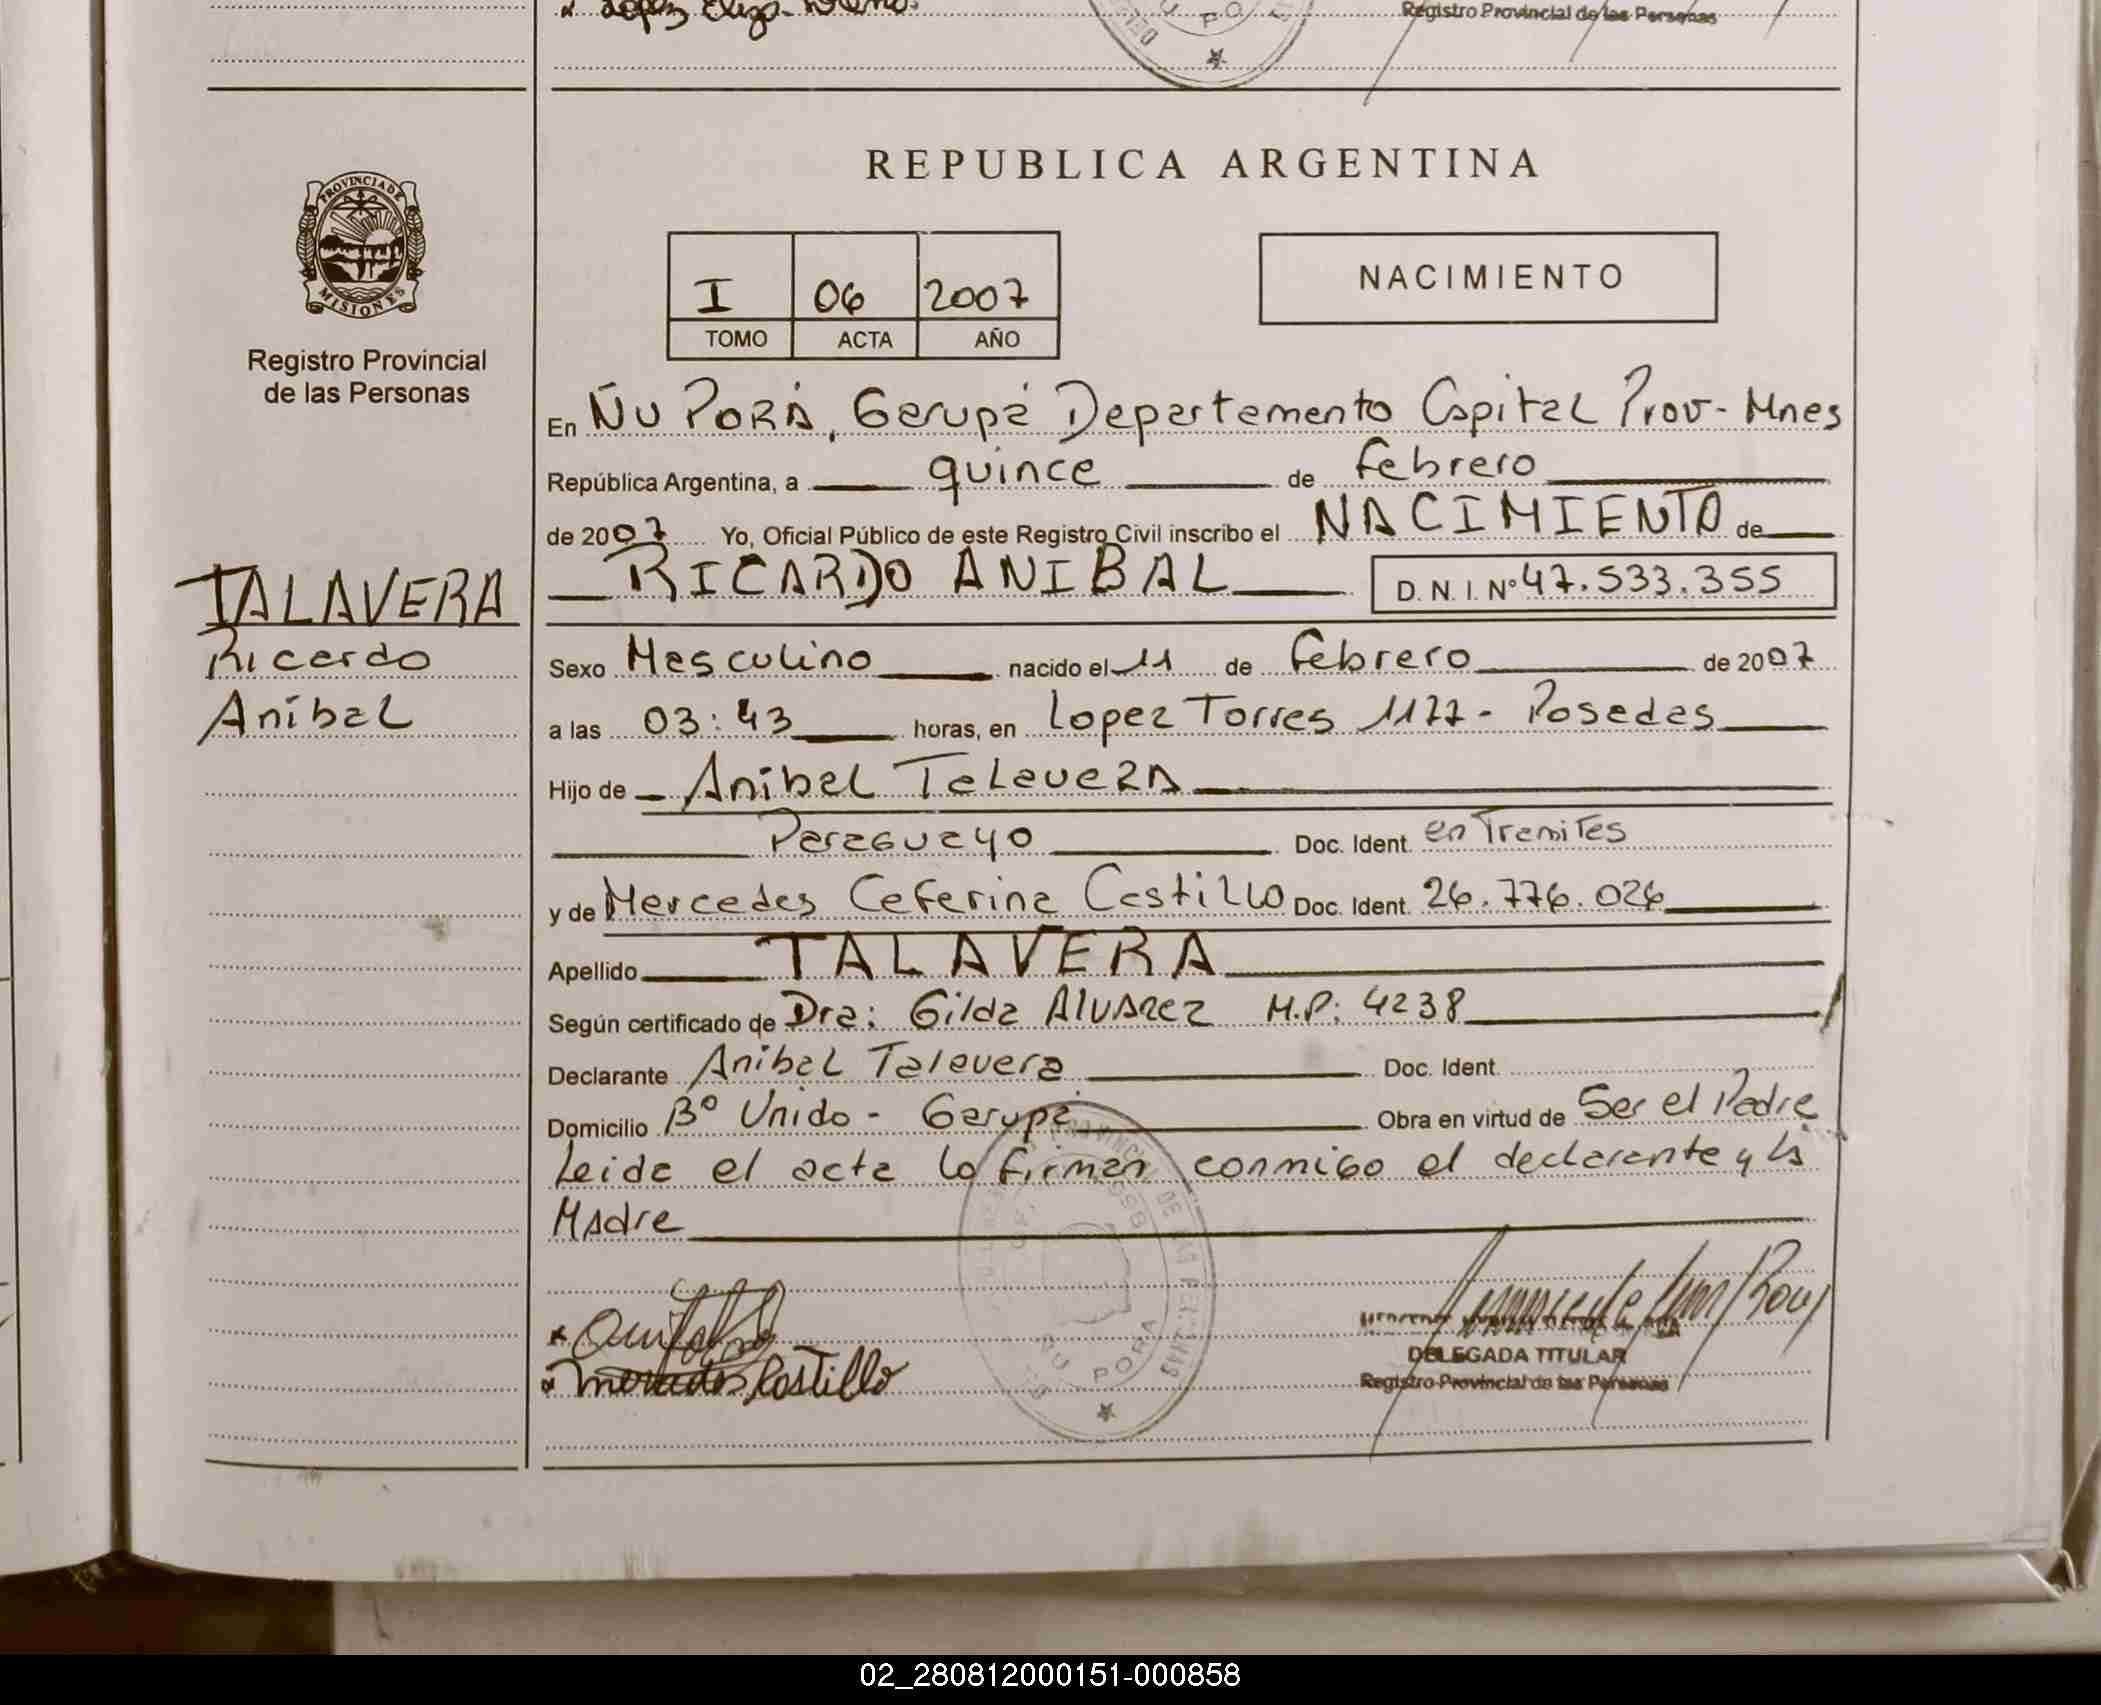 Registro Provincial de las Personas
REPUBLICA ARGENTINA
PROVINCIA DE
MISIONES
Registro Provincial
de las Personas
I 06 2007
TOMO ACTA AÑO
NACIMIENTO
En Ñu Porá, Garupá Departamento Capital Prov- Mnes
República Argentina, a quince de febrero
de 2007 Yo, Oficial Público de este Registro Civil inscribo el NACIMIENTO de
RICARDO ANIBAL D. N. I. Nº 47.533.355
TALAVERA
Ricardo
Aníbal
Sexo Masculino nacido el 11 de febrero de 2007
a las 03:43 horas, en Lopez Torres 1177 - Posadas
Hijo de Aníbal Talavera
Paraguayo Doc. Ident. en Tramites
y de Mercedes Ceferina Castillo Doc. Ident. 26.776.026
Apellido TALAVERA
Según certificado de Dra: Gilda Alvarez M.P: 4238
Declarante Aníbal Talavera Doc. Ident.
Domicilio Bº Unido - Garupá Obra en virtud de Ser el Padre
Leida el acta la firman conmigo el declarante y la
Madre
Mercedes Castillo
DELEGADA TITULAR
Registro Provincial de las Personas
ÑU PORA
02_280812000151-000858